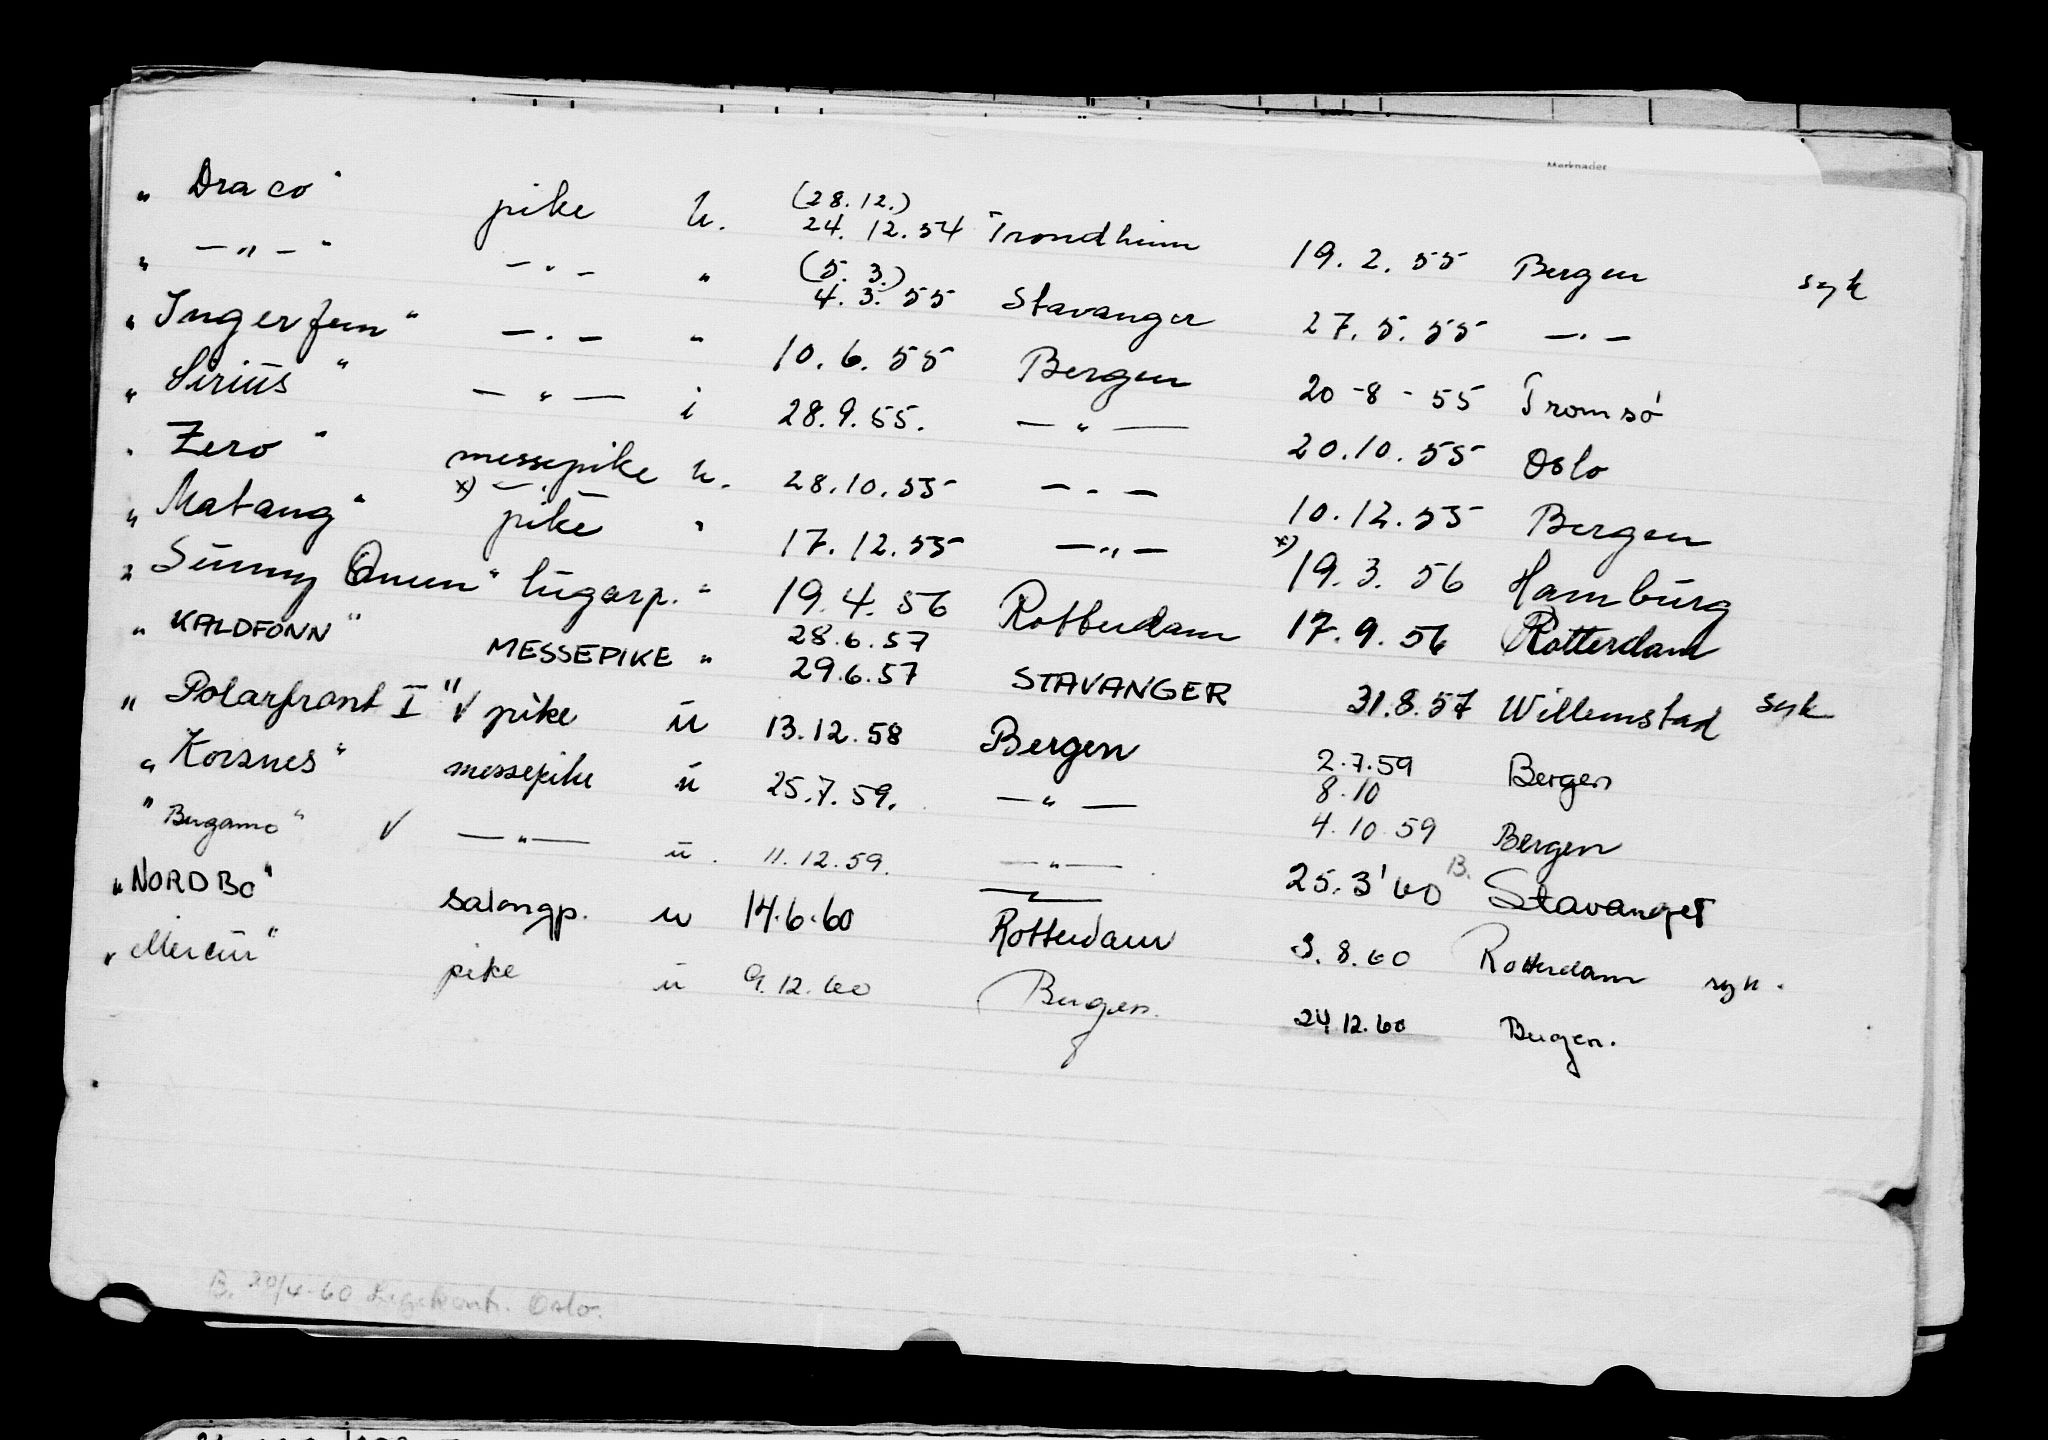 Merknader
„ Draco" pike u. (28.12.) 24.12.54 Trondheim 19.2.55 Bergen syk
„ —„—" —„— „ (5.3.) 4.3.55 Stavanger 27.5.55 —„—
„ Ingerfem" —„— „ 10.6.55 Bergen 20-8-55 Tromsö
„ Sirius" —„— i 28.9.55. —„— 20.10.55 Oslo
„ Zero" messepike u. 28.10.55 —„— 10.12.55 Bergen
„ Matang" x) pike „ 17.12.55 —„— x) 19.3.56 Hamburg
„ Sunny Queen" lugarp. „ 19.4.56 Rotterdam 17.9.56 Rotterdam
„ KALDFONN" MESSEPIKE „ 28.6.57 29.6.57 STAVANGER 31.8.57 Willemstad syk
„ Polarfront I" √ pike u 13.12.58 Bergen 2.7.59 Bergen
„ Korsnes" messepike u 25.7.59. —„— 8.10 4.10.59 Bergen
„ Bergamo" √ —„— u. 11.12.59. —„— 25.3'60 B. Stavanger
„ NORDBO" salongp. u 14.6.60 Rotterdam 3.8.60 Rotterdam syk.
„ Mercur" pike u 9.12.60 Bergen. 24.12.60 Bergen.
B. 20/4-60 Legekontr. Oslo.